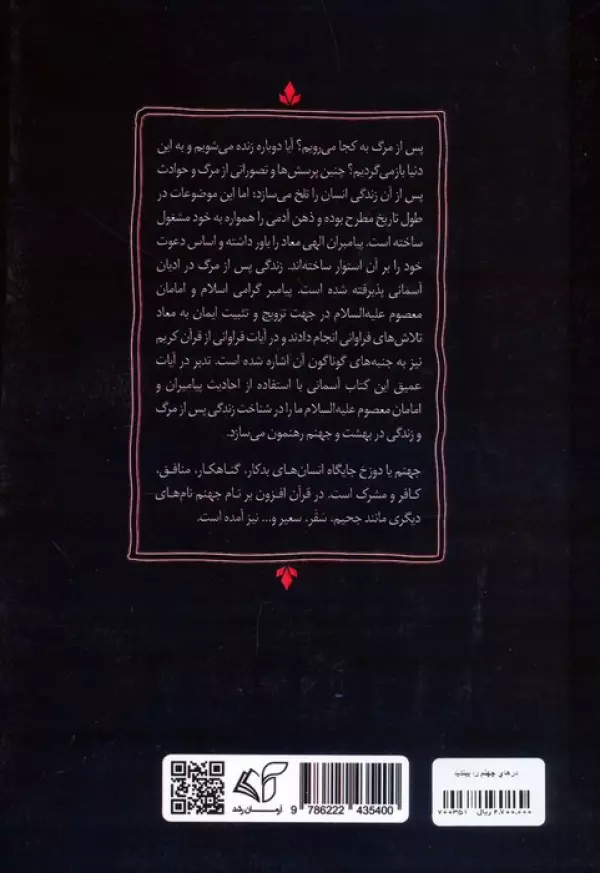 پس از مرگ به کجا می‌رویم؟ آیا دوباره زنده می‌شویم و به این
دنیا بازمی‌گردیم؟ چنین پرسش‌ها و تصوراتی از مرگ و حوادث
پس از آن زندگی انسان را تلخ می‌سازد؛ اما این موضوعات در
طول تاریخ مطرح بوده و ذهن آدمی را همواره به خود مشغول
ساخته است. پیامبران الهی معاد را باور داشته و اساس دعوت
خود را بر آن استوار ساخته‌اند. زندگی پس از مرگ در ادیان
آسمانی پذیرفته شده است. پیامبر گرامی اسلام و امامان
معصوم علیه‌السلام در جهت ترویج و تثبیت ایمان به معاد
تلاش‌های فراوانی انجام دادند و در آیات فراوانی از قرآن کریم
نیز به جنبه‌های گوناگون آن اشاره شده است. تدبر در آیات
عمیق این کتاب آسمانی با استفاده از احادیث پیامبران و
امامان معصوم علیه‌السلام ما را در شناخت زندگی پس از مرگ
و زندگی در بهشت و جهنم رهنمون می‌سازد.
جهنم یا دوزخ جایگاه انسان‌های بدکار، گناهکار، منافق،
کافر و مشرک است. در قرآن افزون بر نام جهنم نام‌های
دیگری مانند جحیم، سَقَر، سعیر و... نیز آمده است.
آرمان رشد
9 786222 435400
درهای جهنم را ببندید
۲,۷۰۰,۰۰۰ ریال
۷۰۰۳۵۱